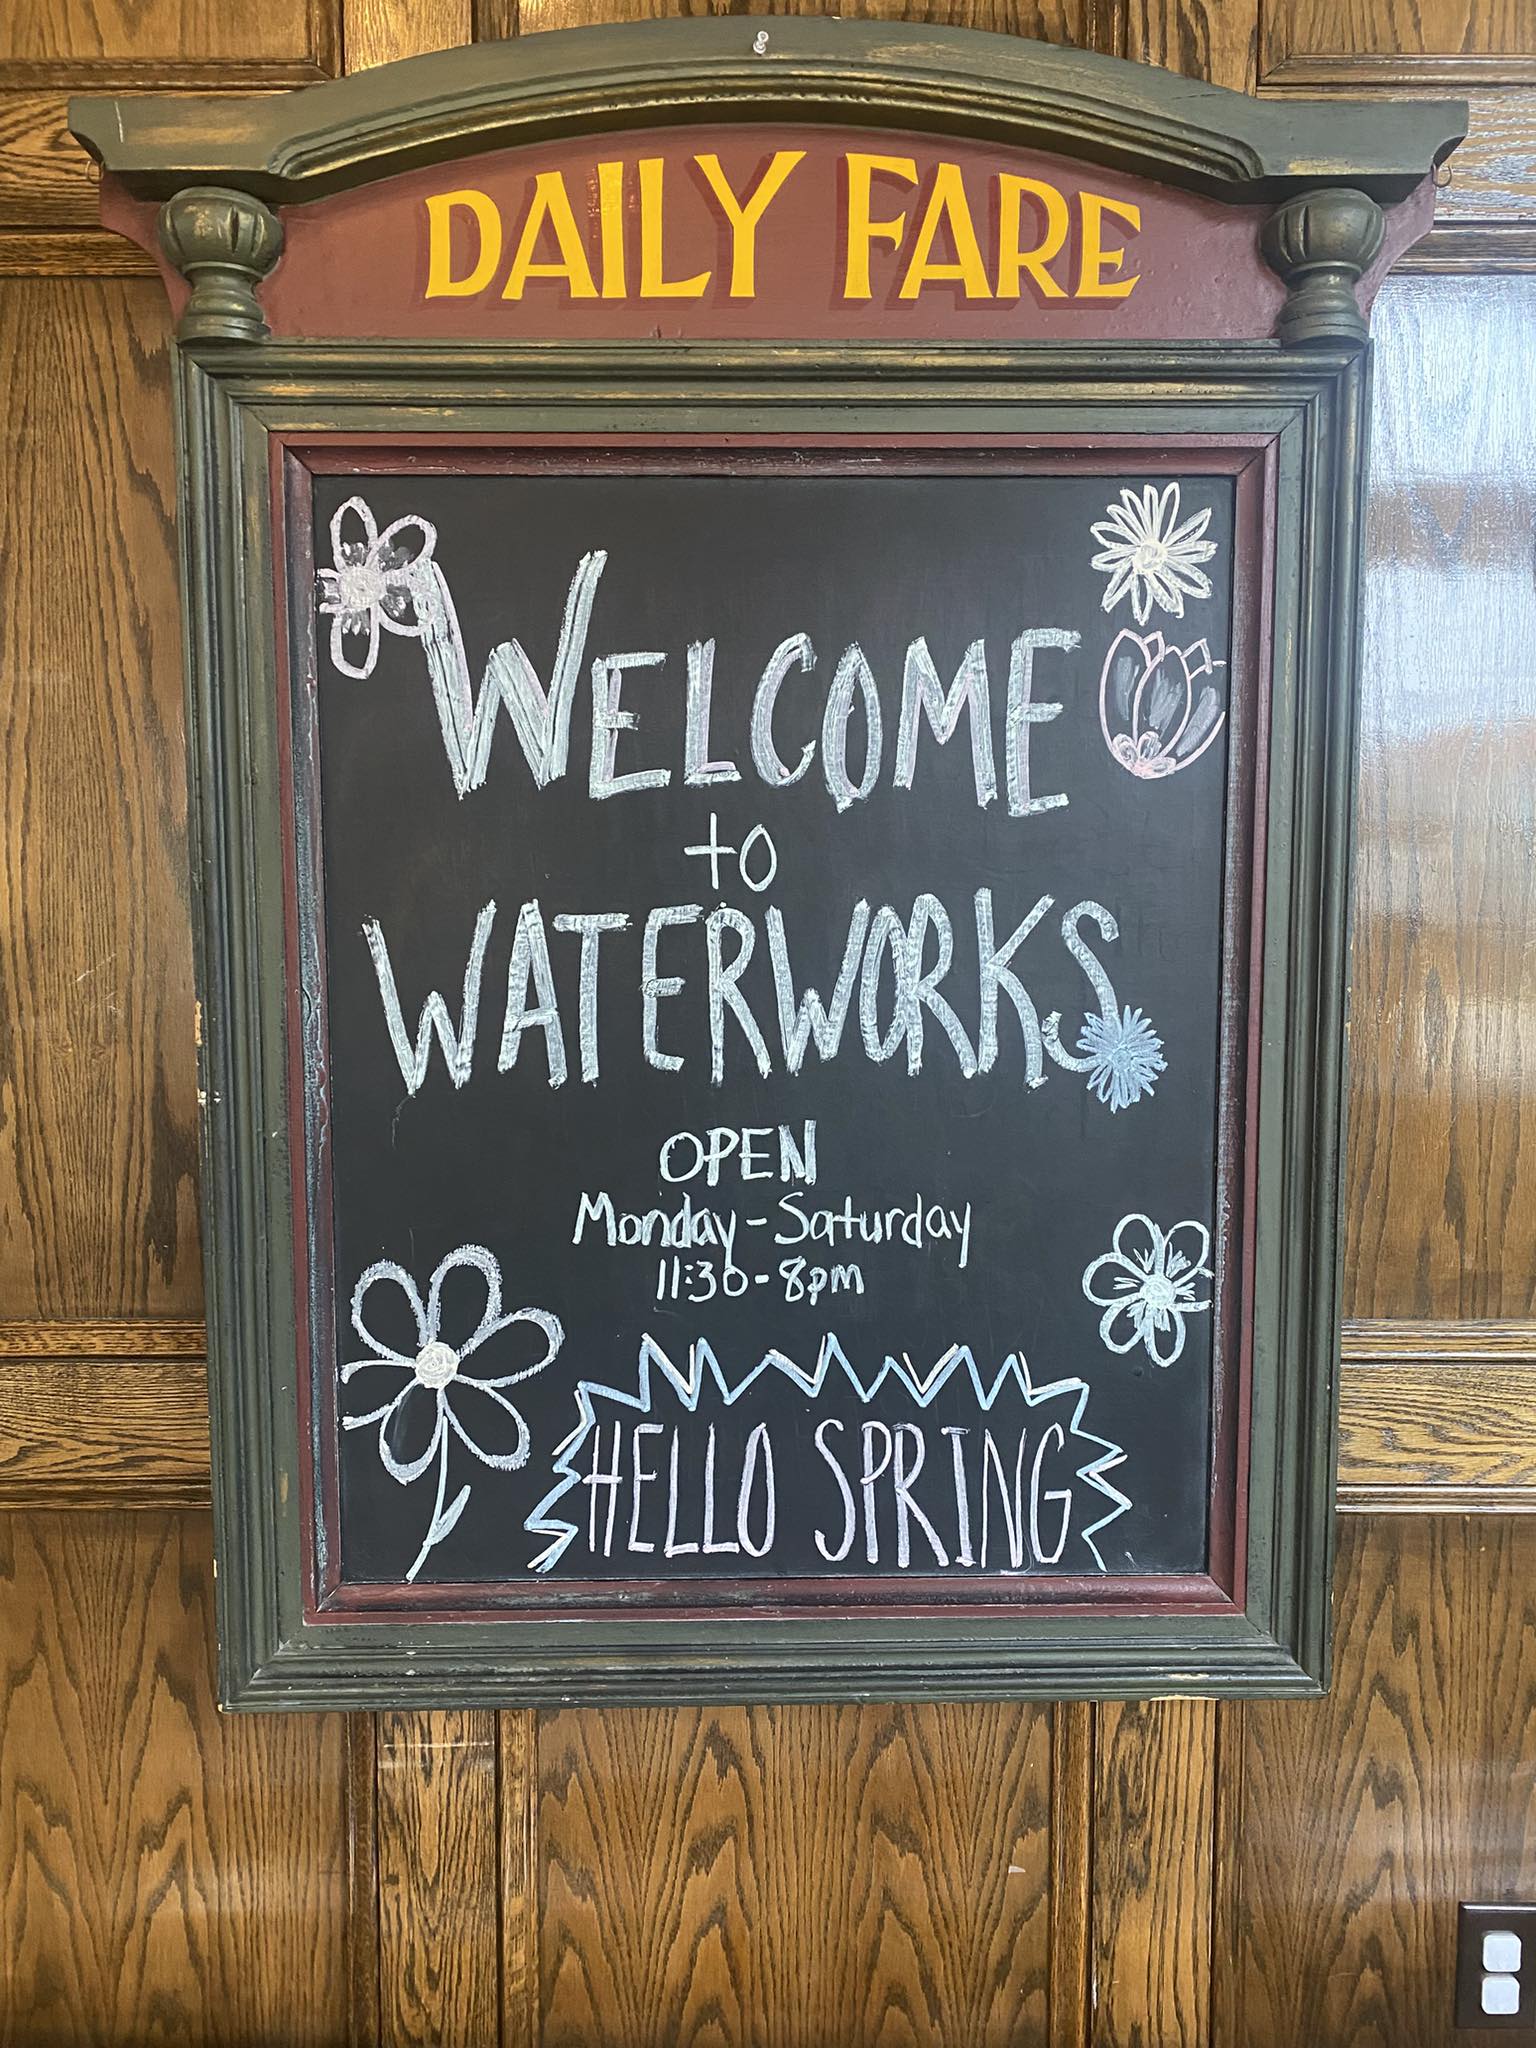 DAILY FARE
WELCOME
to
WATERWORKS
OPEN
Monday-Saturday
11:30-8pm
HELLO SPRING